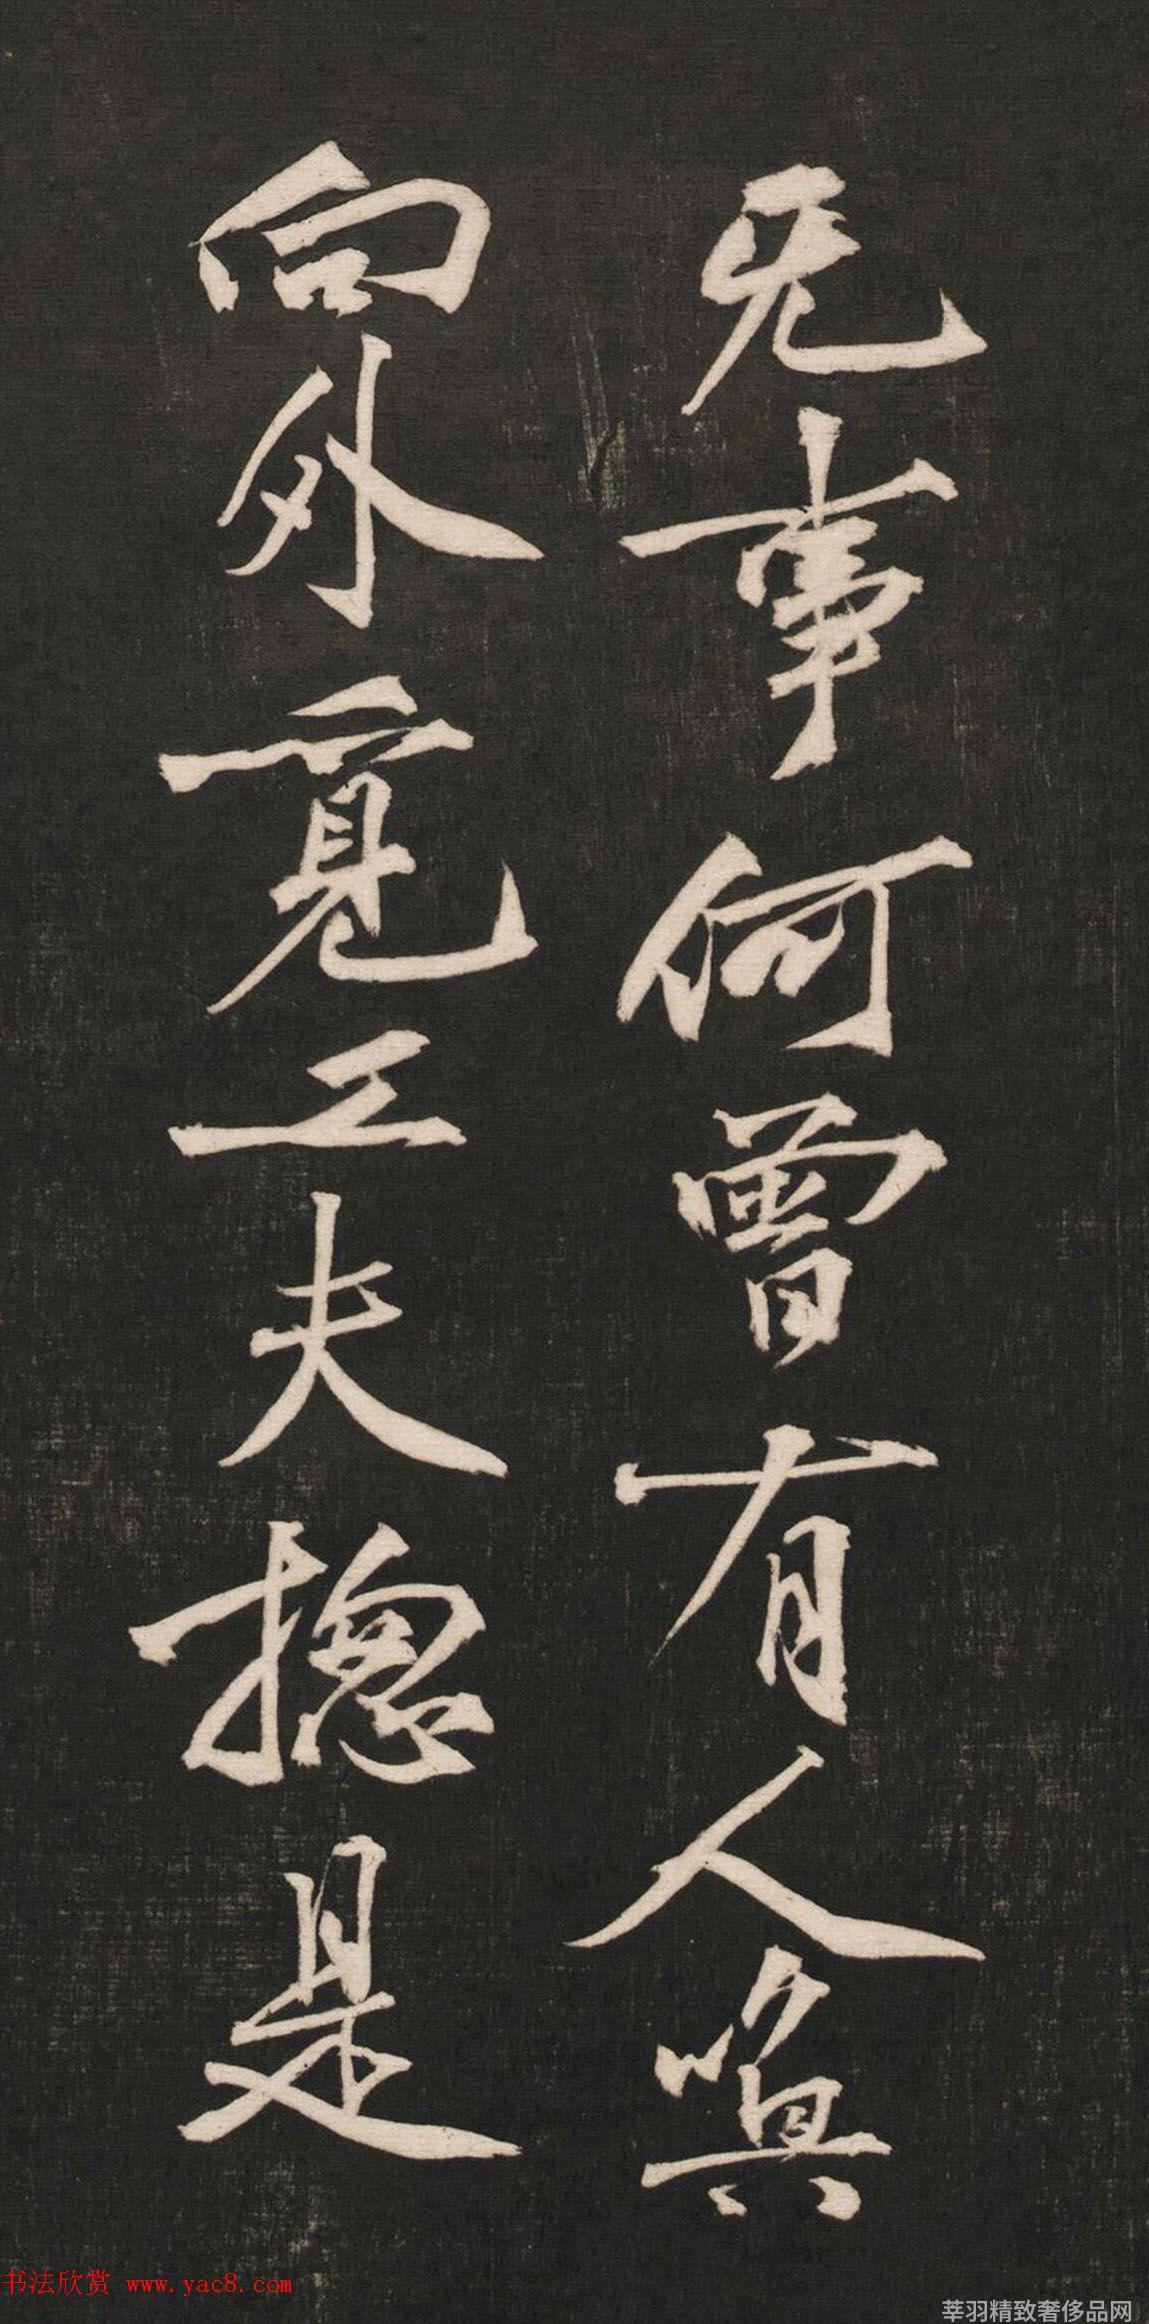 无事何曾有人唤
向外覓工夫揔是
书法欣赏 www.yac8.com
莘羽精致奢侈品网